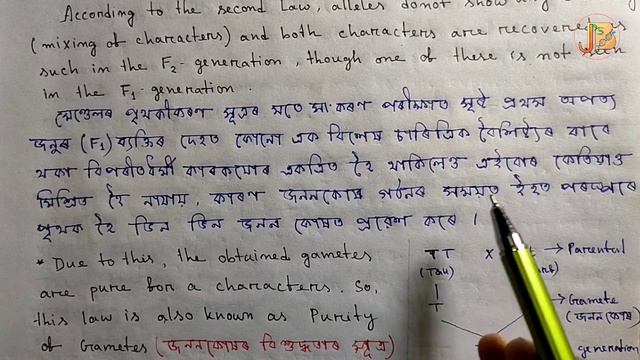 According to the second Law, alleles donot show any
(mixing of characters) and both characters are recovered as
such in the F₂-generation, though one of these is not seen
in the F₁-generation.
মেণ্ডেলৰ পৃথকীকৰণ সূত্ৰৰ মতে সংকৰণ পৰীক্ষাত সৃষ্ট প্ৰথম অপত্য
জনুৰ (F₁) ব্যক্তিৰ দেহত কোনো এক বিশেষ চাৰিত্ৰিক বৈশিষ্ট্যৰ বাবে
থকা বিপৰীতধৰ্মী কাৰকযোৰ একত্ৰিত হৈ থাকিলেও এইবোৰ কেতিয়াও
মিশ্ৰিত হৈ নাযায়, কাৰণ জননকোষ গঠনৰ সময়ত ইহঁত পৰস্পৰে
পৃথক হৈ ভিন ভিন জনন কোষত প্ৰৱেশ কৰে ।
* Due to this, the obtained gametes
are pure for a characters. So,
this law is also known as Purity
of Gametes (জননকোষৰ বিশুদ্ধতাৰ সূত্ৰ)
TT x → Parental
(Tall)
T → Gamete
(জনন কোষ)
generation